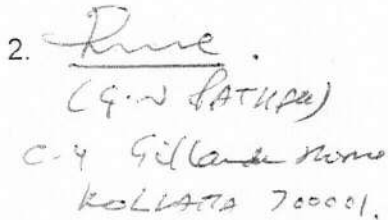 2.
(G.N PATHAK)
C-4 Gillander House
KOLKATA 700001.